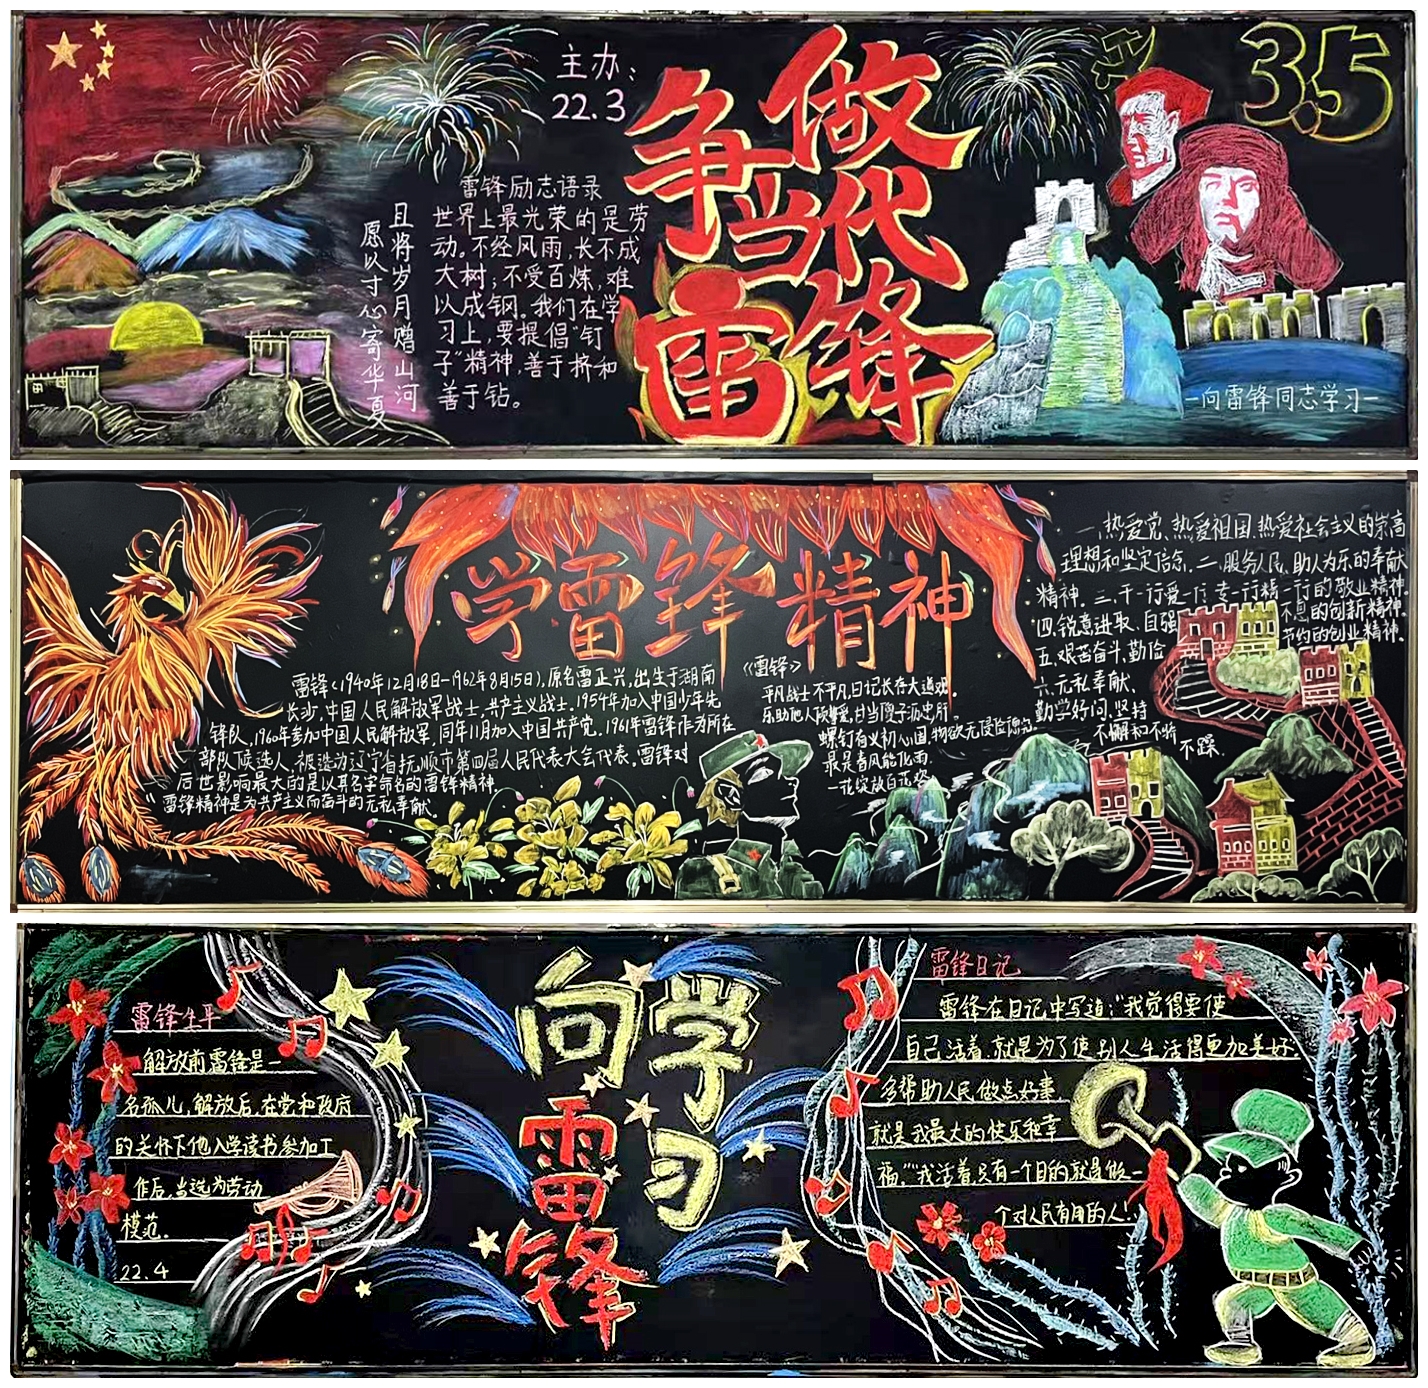 主办：
22.3
争做
当代
雷锋
3.5
雷锋励志语录
世界上最光荣的是劳
动。不经风雨，长不成
大树；不受百炼，难
以成钢。我们在学
习上，要提倡“钉
子”精神，善于挤和
善于钻。
且将岁月赠山河
愿以寸心寄华夏
—向雷锋同志学习—
学雷锋精神
雷锋（1940年12月18日—1962年8月15日），原名雷正兴，出生于湖南
长沙，中国人民解放军战士，共产主义战士。1954年加入中国少年先
锋队，1960年参加中国人民解放军，同年11月加入中国共产党。1961年雷锋作为所在
部队候选人，被选为辽宁省抚顺市第四届人民代表大会代表。雷锋对
后世影响最大的是以其名字命名的雷锋精神。
“雷锋精神是为共产主义而奋斗的无私奉献。
《雷锋》
平凡战士不平凡，日记长存大道观。
乐助他人倾挚爱，甘当傻子沥忠肝。
螺钉有义初心固，物欲无侵俭德
最是春风能化雨
一花绽放百花
一、热爱党、热爱祖国、热爱社会主义的崇高
理想和坚定信念。二、服务人民、助人为乐的奉献
精神。三、干一行爱一行、专一行精一行的敬业精神。
四、锐意进取、自强不息的创新精神。
五、艰苦奋斗、勤俭节约的创业精神。
六、无私奉献，
勤学好问、坚持
不懈和不怕
不
向雷锋
学习
雷锋生平
解放前雷锋是一
名孤儿，解放后，在党和政府
的关怀下他入学读书参加工
作后，当选为劳动
模范。
22.4
雷锋日记
雷锋在日记中写道：“我觉得要使
自己活着，就是为了使别人生活得更加美好
多帮助人民做点好事
就是我最大的快乐和幸
福。”“我活着，只有一个目的就是做一
个对人民有用的人！